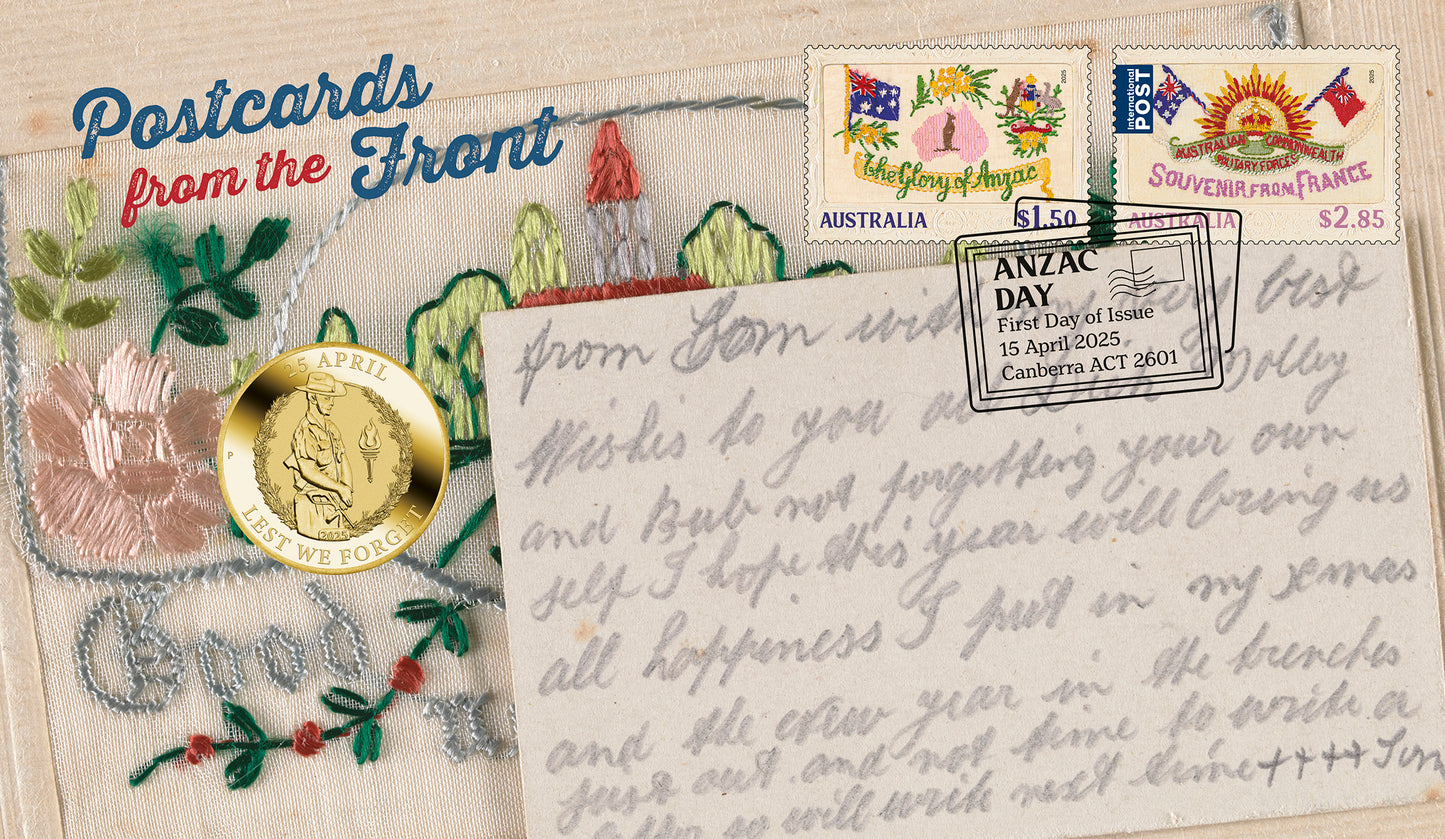 Postcards
from the Front
AUSTRALIA
2025
The Glory of Anzac
AUSTRALIA $1.50
International
POST
2025
AUSTRALIAN COMMONWEALTH
MILITARY FORCES
SOUVENIR FROM FRANCE
AUSTRALIA $2.85
ANZAC
DAY
First Day of Issue
15 April 2025
Canberra ACT 2601
25 APRIL
P
2025
LEST WE FORGET
Good
from Tom with my very best
Wishes to you al Dick Molley
and Bub not forgetting your own
self I hope this year will bring us
all happiness I put in my xmas
and the new year in the trenches
just out and not time to write a
so will write next time ++++ Tom